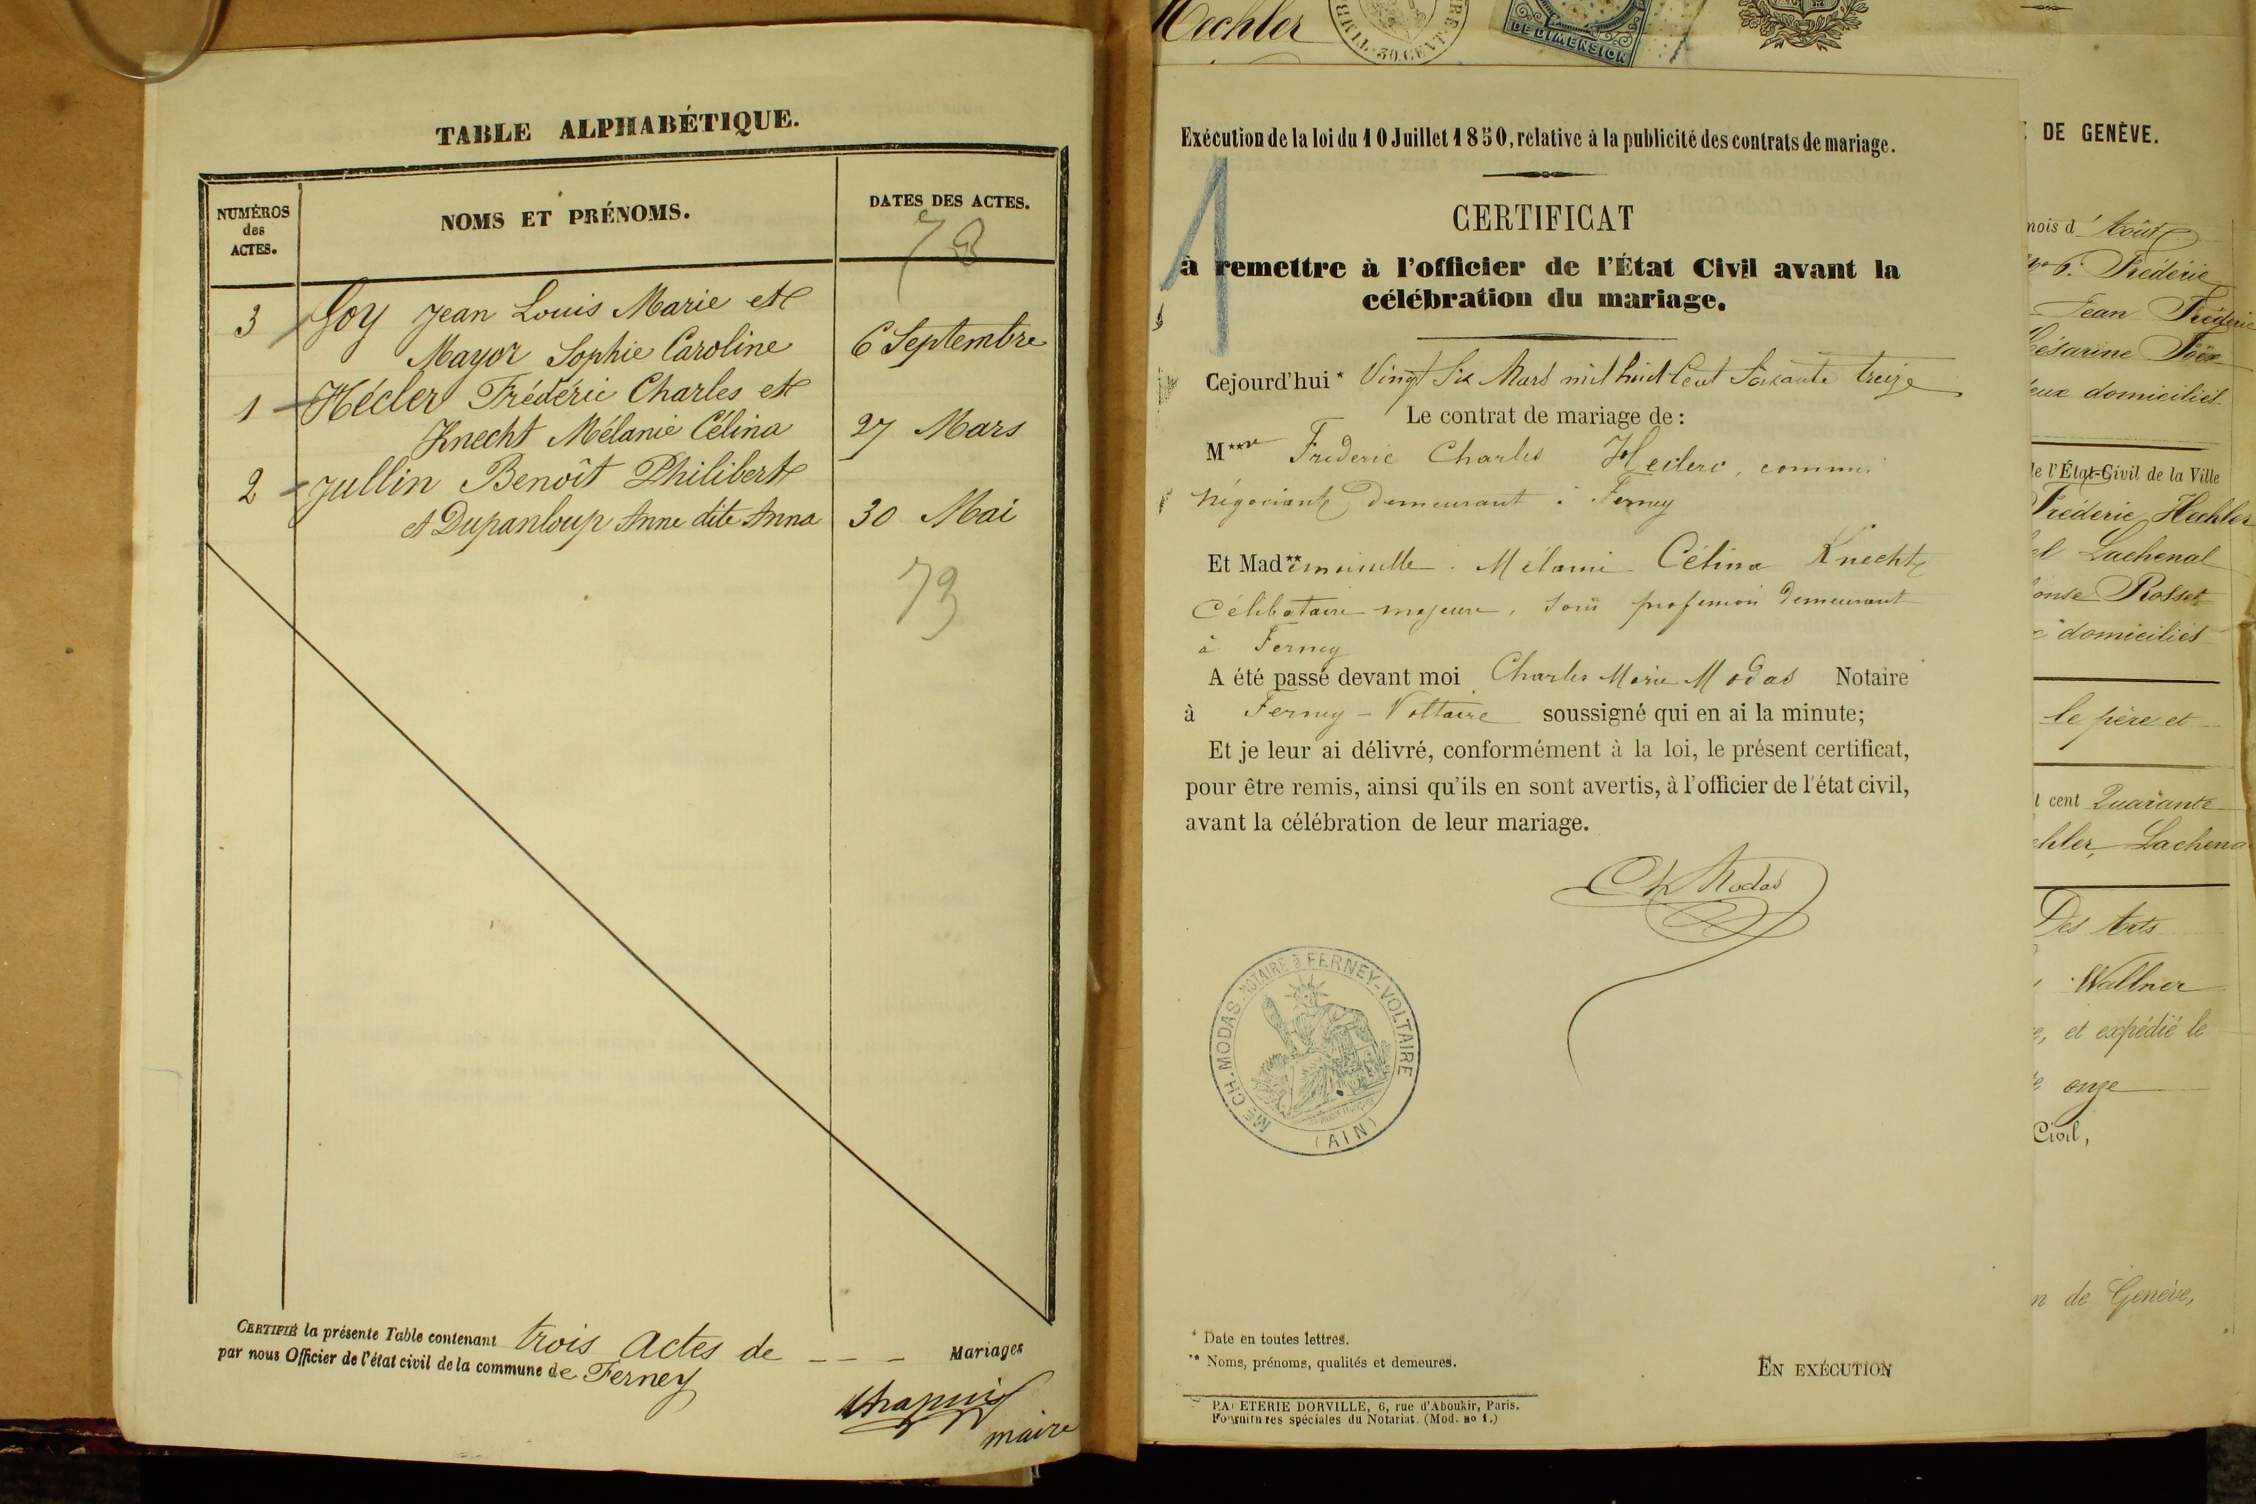 TABLE ALPHABÉTIQUE.
NUMÉROS des ACTES.
NOMS ET PRÉNOMS.
DATES DES ACTES.
73
3 Goy Jean Louis Marie et
Mayor Sophie Caroline 6 Septembre
1 Hécler Frédéric Charles et
Knecht Mélanie Célina 27 Mars
2 Jullin Benoît Philibert
et Dupanloup Anne dite Anna 30 Mai
73
CERTIFIÉ la présente Table contenant trois actes de Mariages
par nous Officier de l'état civil de la commune de Ferney
Chapuis
maire
Hechler
30 CENT
DE DIMENSION
Exécution de la loi du 10 Juillet 1850, relative à la publicité des contrats de mariage.
1
CERTIFICAT
à remettre à l'officier de l'État Civil avant la
célébration du mariage.
Cejourd'hui* Vingt Six Mars mil huit Cent Soixante treize
Le contrat de mariage de :
M** Frederic Charles Heclerc, commis
négociant demeurant à Ferney
Et Mad**emoiselle Mélanie Célina Knecht
Célibataire majeure, sans profession demeurant
à Ferney
A été passé devant moi Charles Marie Modas Notaire
à Ferney-Voltaire soussigné qui en ai la minute;
Et je leur ai délivré, conformément à la loi, le présent certificat,
pour être remis, ainsi qu'ils en sont avertis, à l'officier de l'état civil,
avant la célébration de leur mariage.
Ch Modas
ME CH. MODAS NOTAIRE à FERNEY-VOLTAIRE
(AIN)
* Date en toutes lettres.
** Noms, prénoms, qualités et demeures.
EN EXÉCUTION
PA ETERIE DORVILLE, 6, rue d'Aboukir, Paris.
Fournitures spéciales du Notariat. (Mod. no 1.)
DE GENÈVE.
mois d'Août
Frédéric
Jean Frédéric
Césarine Foëx
deux domiciliés
de l'État-Civil de la Ville
Frédéric Hechler
el Lachenal
onse Rosset
domiciliés
le père et
t cent Quarante
chler, Lachena
Des Arts
Wallner
e, et expédié le
onze
Civil,
n de Genève,